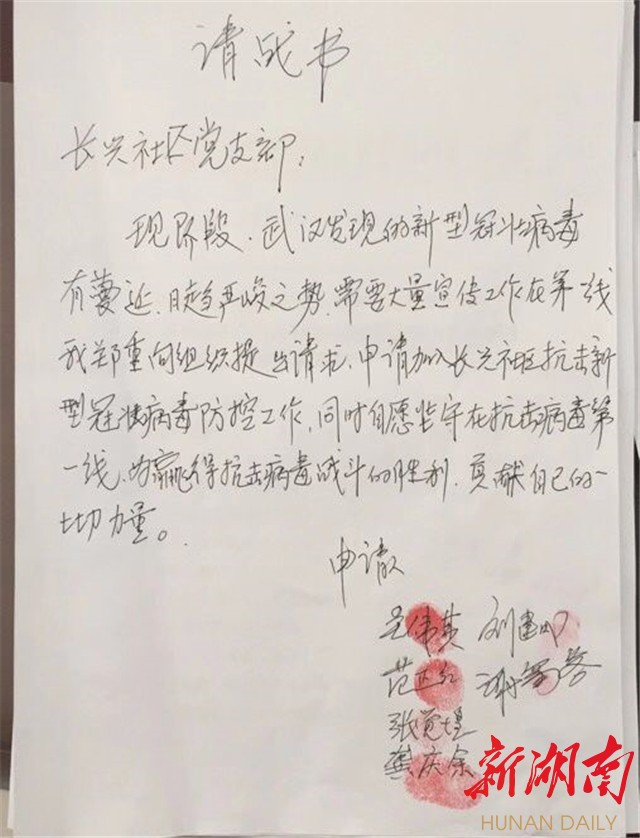 请战书
长兴社区党支部：
现阶段，武汉发现的新型冠壮病毒
有蔓延、日趋严峻之势，需要大量宣传工作在第一线
我郑重向组织提出请求，申请加入长兴社区抗击新
型冠壮病毒防控工作，同时自愿坚守在抗击病毒第
一线，为赢得抗击病毒战斗的胜利，贡献自己的一
切力量。
申请人
伟英 刘建
范 红 谢
张觉煌
龚庆余
新湖南
HUNAN DAILY